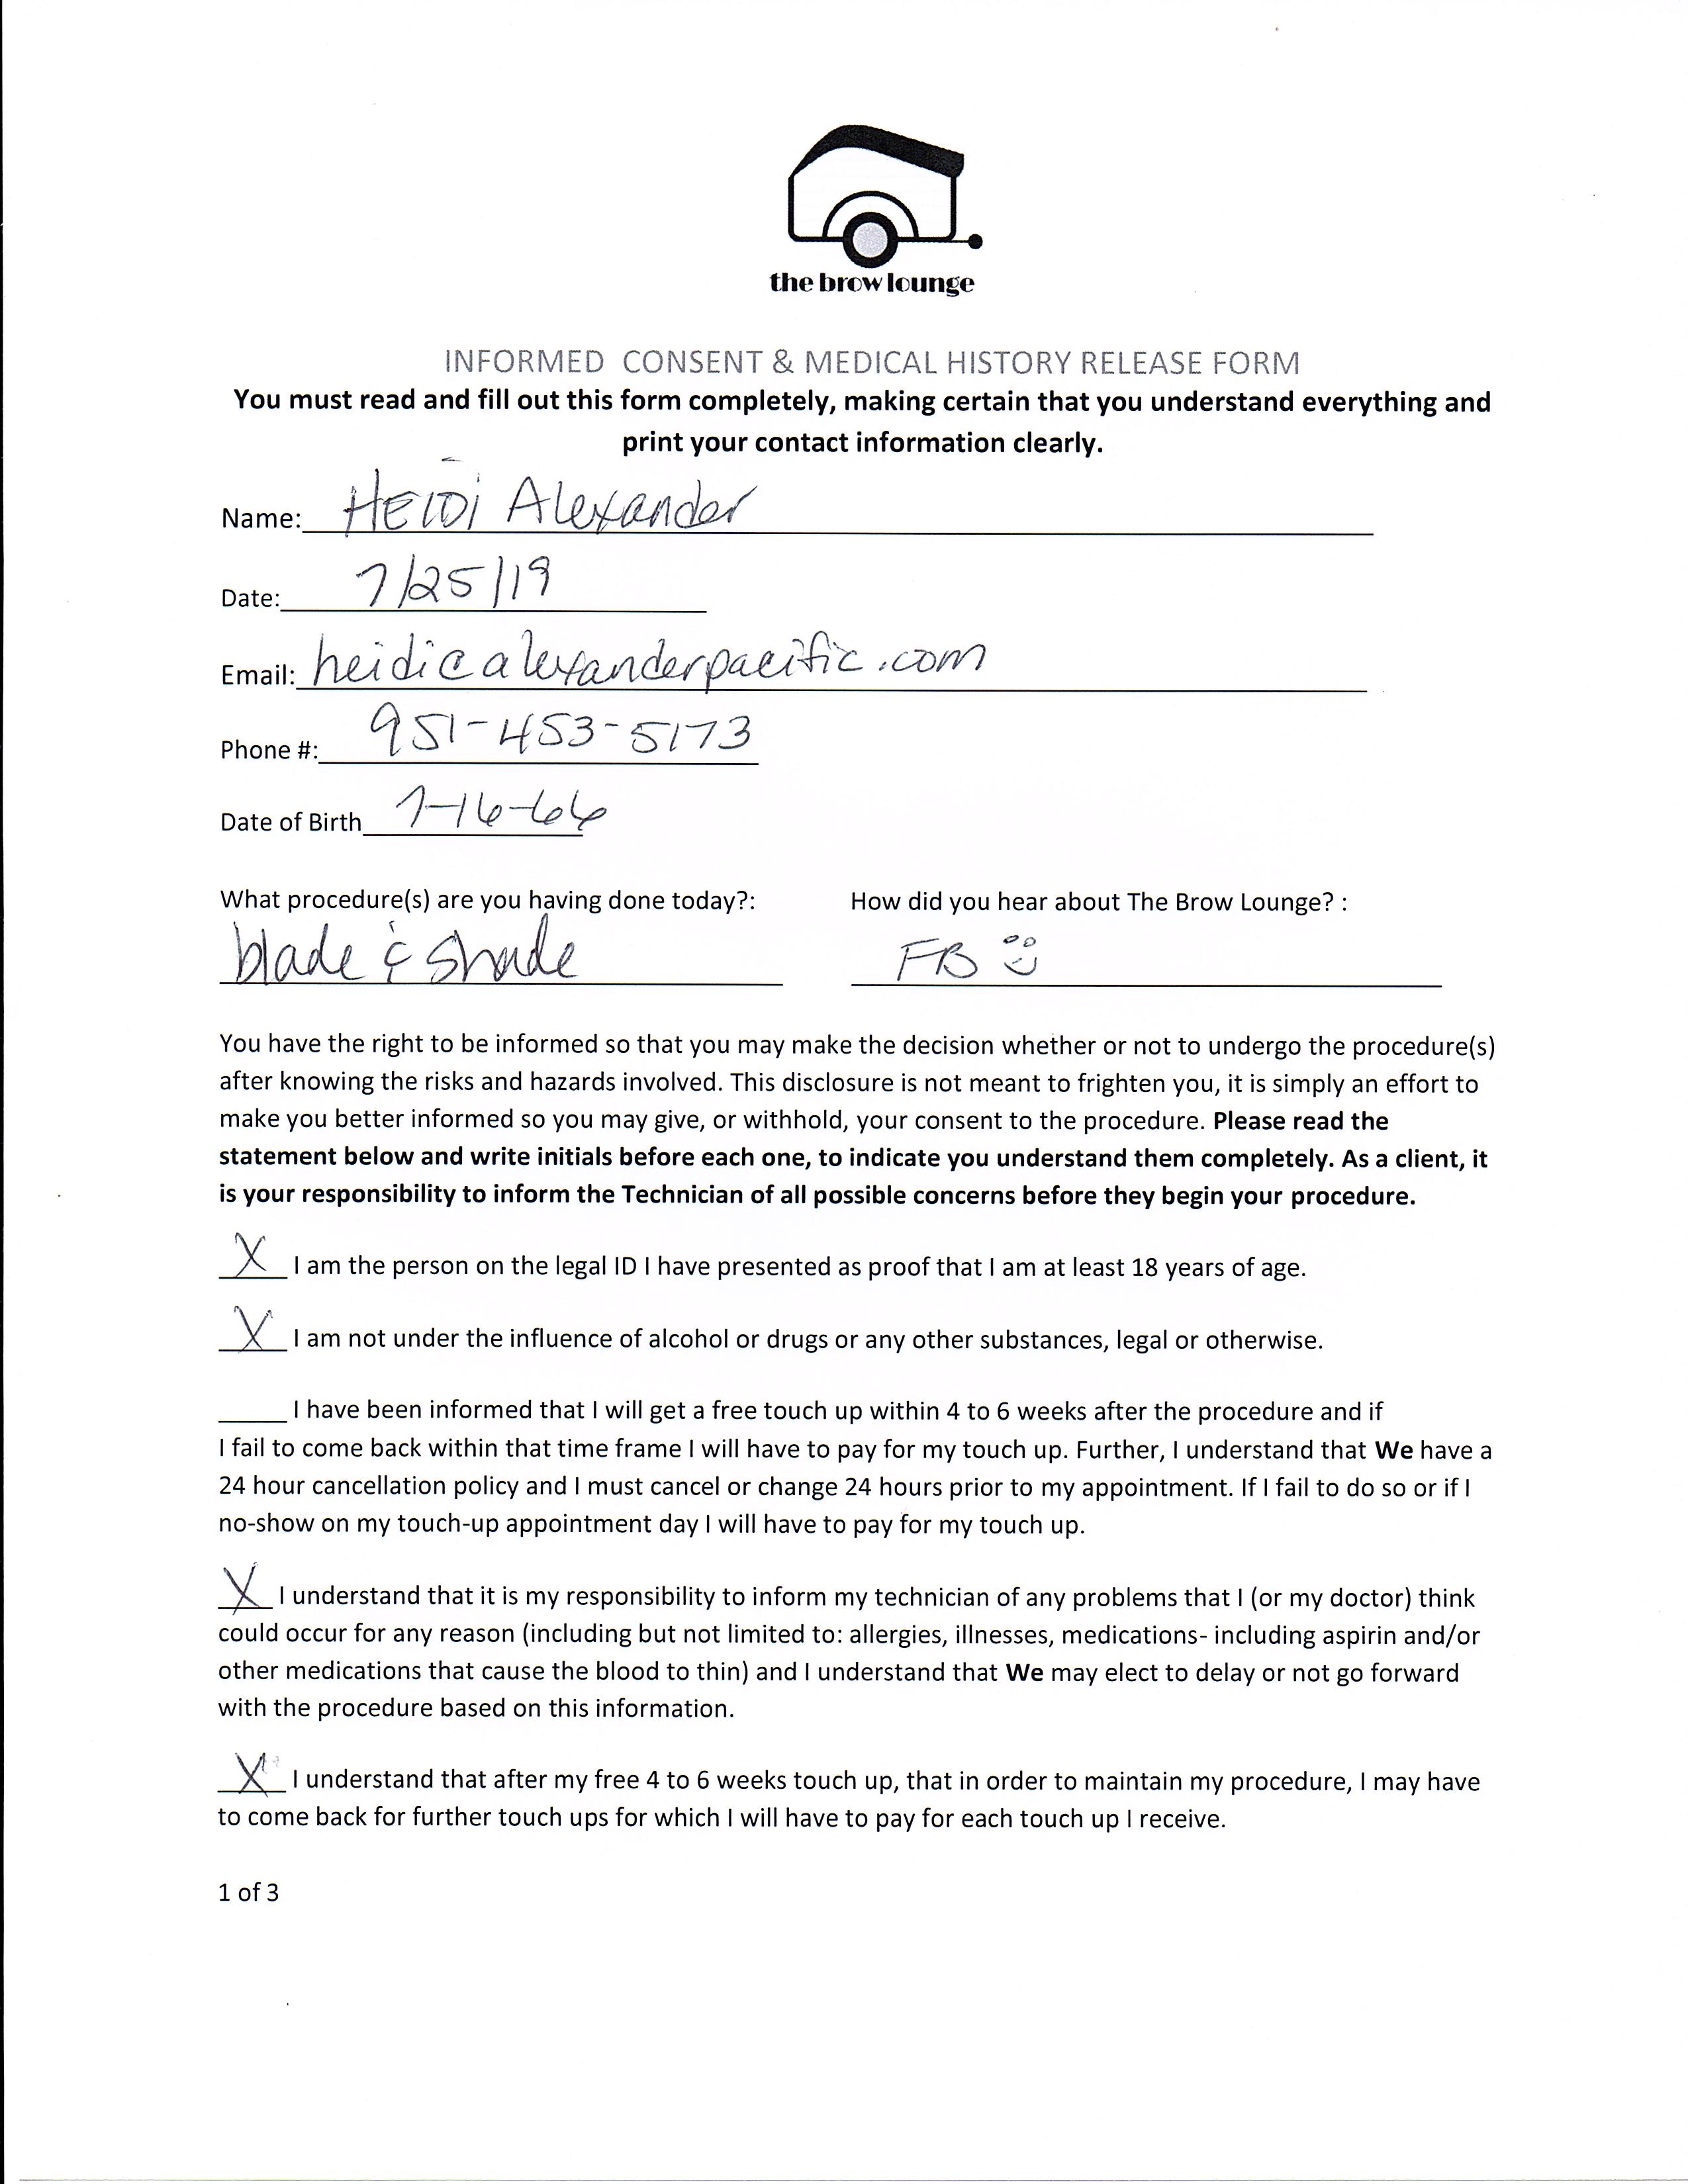 the brow lounge
INFORMED CONSENT & MEDICAL HISTORY RELEASE FORM
You must read and fill out this form completely, making certain that you understand everything and
print your contact information clearly.
Name: HEIDi Alexander
Date: 7/25/19
Email: heidi@alexanderpacific.com
Phone #: 951-453-5173
Date of Birth 7-16-66
What procedure(s) are you having done today?: How did you hear about The Brow Lounge? :
blade & shade FB
You have the right to be informed so that you may make the decision whether or not to undergo the procedure(s)
after knowing the risks and hazards involved. This disclosure is not meant to frighten you, it is simply an effort to
make you better informed so you may give, or withhold, your consent to the procedure. Please read the
statement below and write initials before each one, to indicate you understand them completely. As a client, it
is your responsibility to inform the Technician of all possible concerns before they begin your procedure.
X I am the person on the legal ID I have presented as proof that I am at least 18 years of age.
X I am not under the influence of alcohol or drugs or any other substances, legal or otherwise.
I have been informed that I will get a free touch up within 4 to 6 weeks after the procedure and if
I fail to come back within that time frame I will have to pay for my touch up. Further, I understand that We have a
24 hour cancellation policy and I must cancel or change 24 hours prior to my appointment. If I fail to do so or if I
no-show on my touch-up appointment day I will have to pay for my touch up.
X I understand that it is my responsibility to inform my technician of any problems that I (or my doctor) think
could occur for any reason (including but not limited to: allergies, illnesses, medications- including aspirin and/or
other medications that cause the blood to thin) and I understand that We may elect to delay or not go forward
with the procedure based on this information.
X I understand that after my free 4 to 6 weeks touch up, that in order to maintain my procedure, I may have
to come back for further touch ups for which I will have to pay for each touch up I receive.
1 of 3